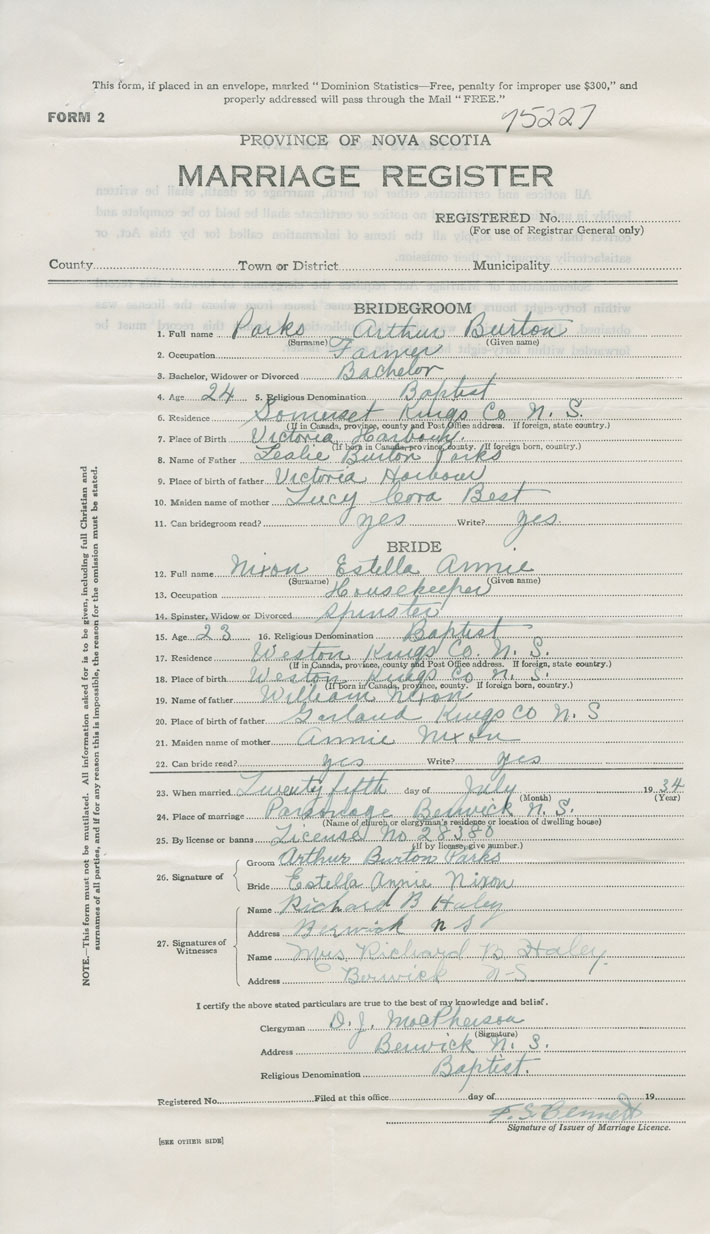 This form, if placed in an envelope, marked "Dominion Statistics—Free, penalty for improper use $300," and
properly addressed will pass through the Mail "FREE."
FORM 2
75227
PROVINCE OF NOVA SCOTIA
MARRIAGE REGISTER
REGISTERED No.
(For use of Registrar General only)
County Town or District Municipality
BRIDEGROOM
1. Full name Parks Arthur Burton
(Surname) (Given name)
2. Occupation Farmer
3. Bachelor, Widower or Divorced Bachelor
4. Age 24 5. Religious Denomination Baptist
6. Residence Somerset Kings Co N. S.
(If in Canada, province, county and Post Office address. If foreign, state country.)
7. Place of Birth Victoria Harbour.
(If born in Canada, province, county. If foreign born, country.)
8. Name of Father Leslie Burton Parks
9. Place of birth of father Victoria Harbour
10. Maiden name of mother Lucy Cora Best
11. Can bridegroom read? yes Write? yes.
BRIDE
12. Full name Nixon Estella Annie
(Surname) (Given name)
13. Occupation Housekeeper
14. Spinster, Widow or Divorced Spinster
15. Age 23 16. Religious Denomination Baptist
17. Residence Weston Kings Co. N. S.
(If in Canada, province, county and Post Office address. If foreign, state country.)
18. Place of birth Weston Kings Co N. S.
(If born in Canada, province, county. If foreign born, country.)
19. Name of father William Nixon
20. Place of birth of father Garland Kings Co N S
21. Maiden name of mother Annie Nixon
22. Can bride read? yes Write? yes
23. When married Twenty fifth day of July 1934
(Month) (Year)
24. Place of marriage Parsonage Berwick N. S.
(Name of church or clergyman's residence or location of dwelling house)
25. By license or banns License No 28380
(If by license, give number.)
26. Signature of
Groom Arthur Burton Parks
Bride Estella Annie Nixon
27. Signatures of Witnesses
Name Richard B Haley
Address Berwick N S
Name Mrs Richard B. Haley.
Address Berwick N-S
I certify the above stated particulars are true to the best of my knowledge and belief.
Clergyman D. J. MacPherson
(Signature)
Address Berwick N. S.
Religious Denomination Baptist.
Registered No. Filed at this office day of 19
F. S. Bennett
Signature of Issuer of Marriage Licence.
[SEE OTHER SIDE]
NOTE.—This form must not be mutilated. All information asked for is to be given, including full Christian and
surnames of all parties, and if for any reason this is impossible, the reason for the omission must be stated.